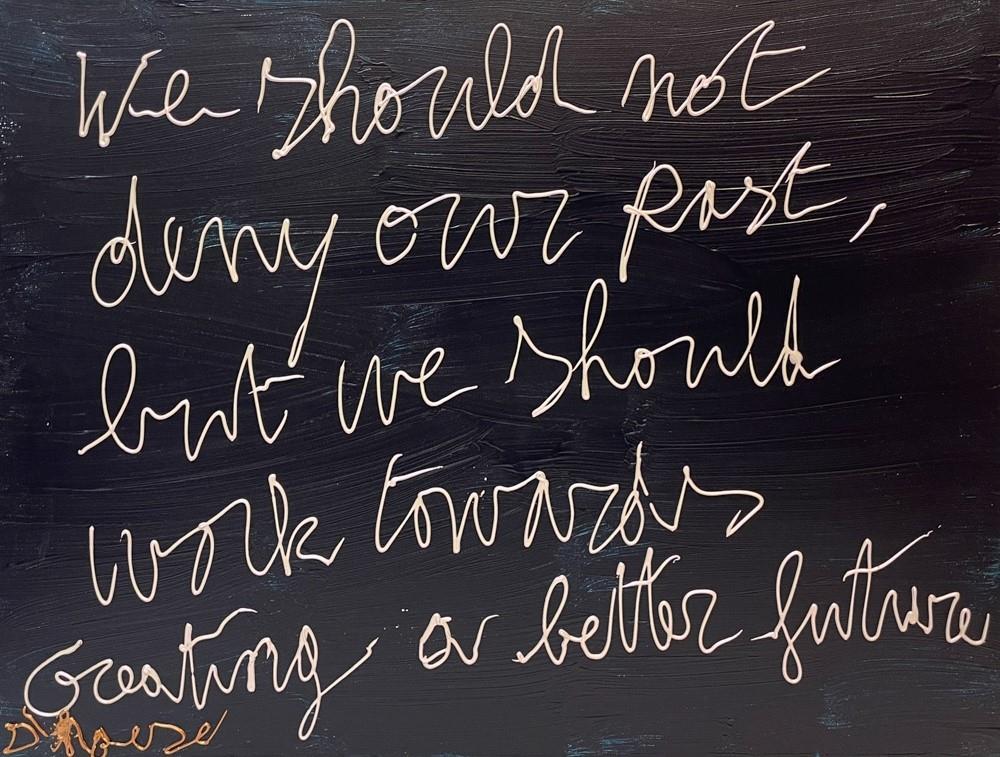 We should not
deny our past,
but we should
work towards
creating a better future